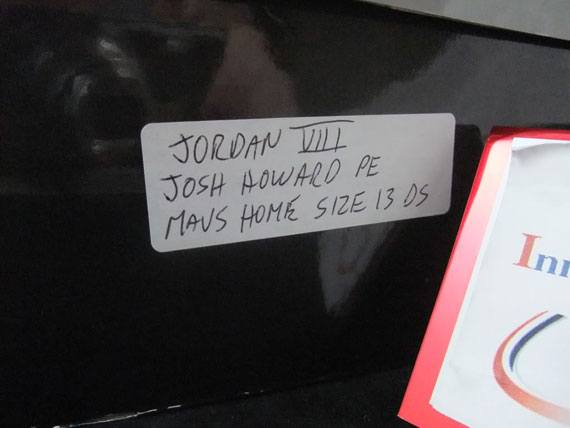 JORDAN VIII
JOSH HOWARD PE
MAVS HOME SIZE 13 DS